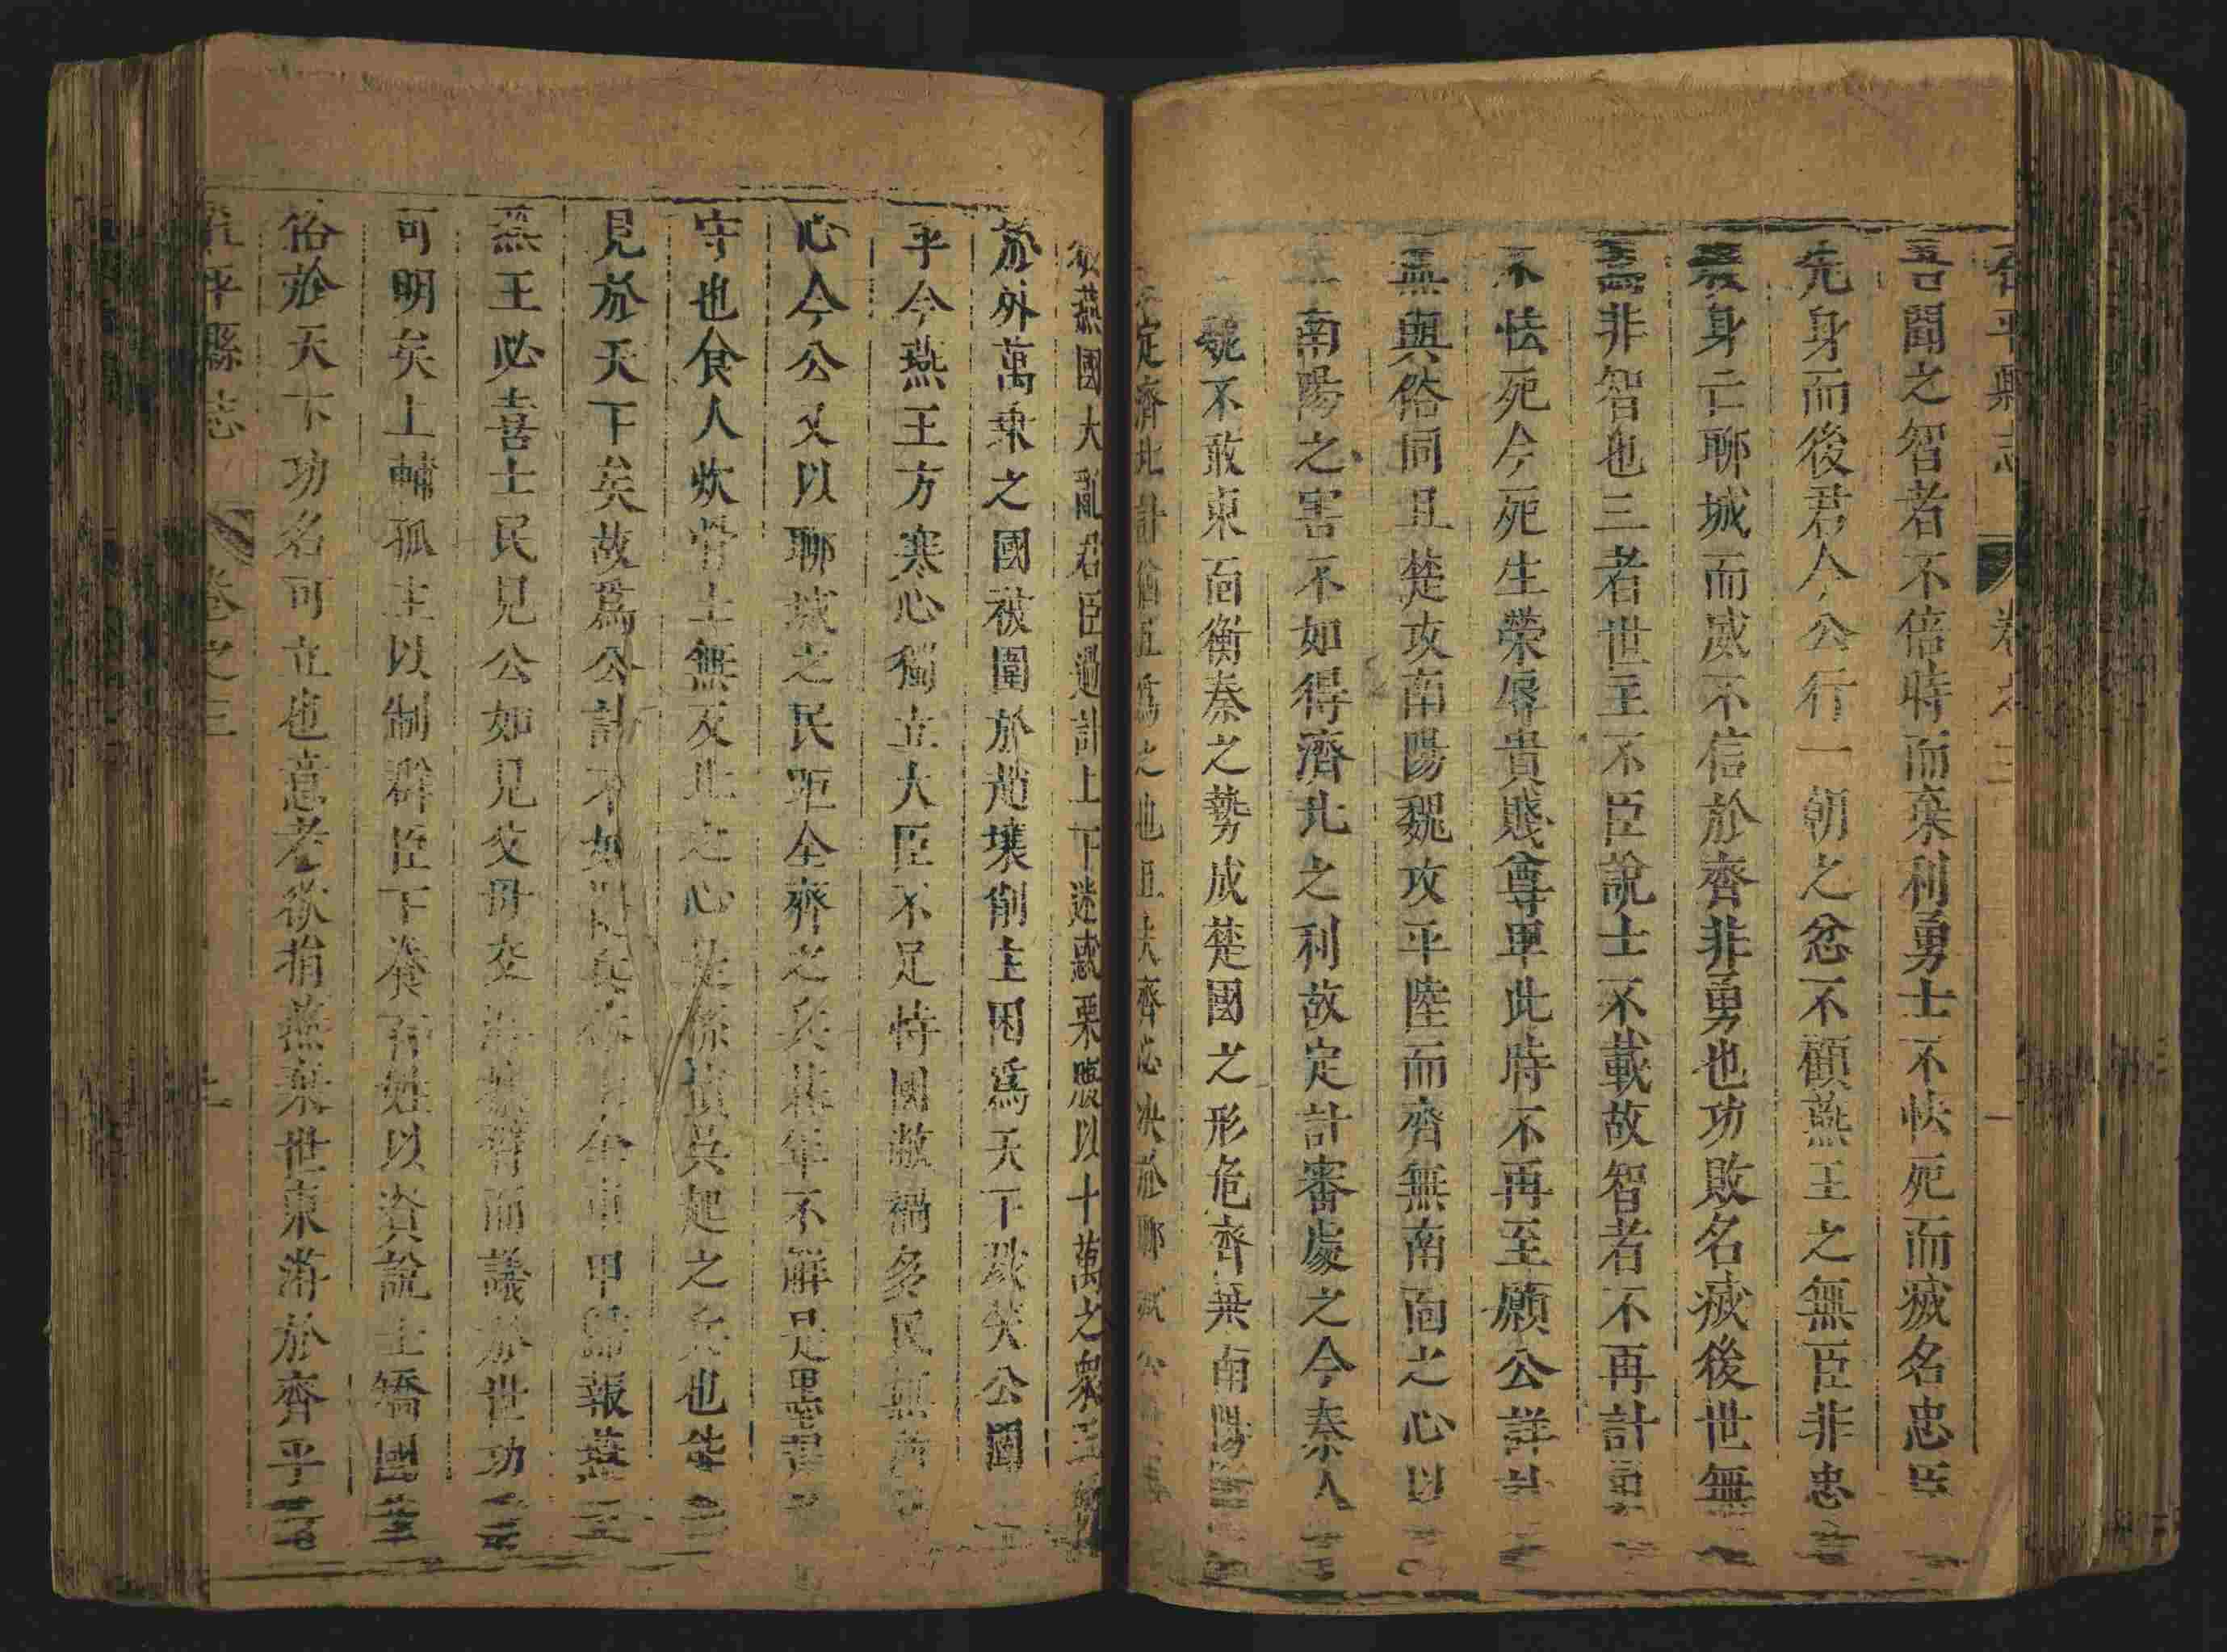 茌平縣志 卷之三
吾聞之智者不倍時而棄利勇士不怯死而滅名忠臣不
先身而後君今公行一朝之忿不顧燕王之無臣非忠
身亡聊城而威不信於齊非勇也功敗名滅後世無
焉非智也三者世主不臣說士不載故智者不再計勇
不怯死今死生榮辱貴賤尊卑此時不再至願公詳計
無與俗同且楚攻南陽魏攻平陸而齊無南面之心以
南陽之害不如得濟北之利故定計審處之今秦人
魏不敢東面衡秦之勢成楚國之形危齊棄南陽
定濟北計猶且爲之也且夫齊必決於聊城公
燕國大亂君臣過計上下迷惑栗腹以十萬之衆五
於外萬乘之國被圍於趙壤削主困爲天下戮笑公聞
乎今燕王方寒心獨立大臣不足恃國敝禍多民無所
心今公又以聊城之民距全齊之兵朞年不解是墨翟
守也食人炊骨士無反北之心是孫臏吳起之兵也能
見於天下矣故爲公計不如罷兵休士全車甲歸報燕王
燕王必喜士民見公如見父母交游攘臂而議於世功
可明矣上輔孤主以制群臣下養百姓以資說士矯國
俗於天下功名可立也意者欲捐燕棄世東游於齊乎
茌平縣志 卷之三